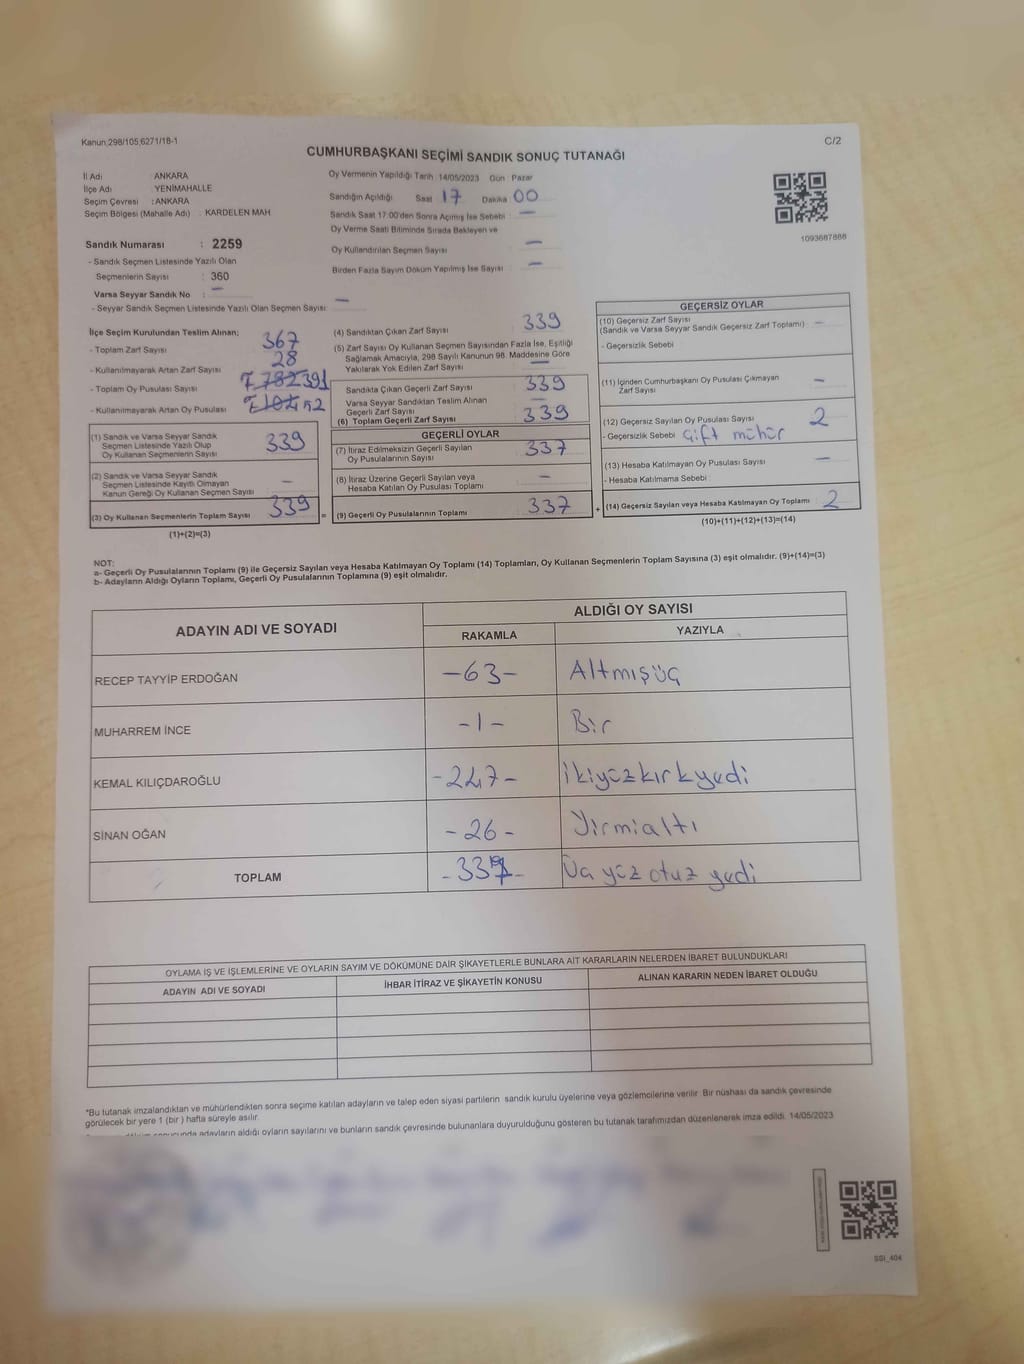 Kanun,298/105,6271/18-1
C/2
CUMHURBAŞKANI SEÇİMİ SANDIK SONUÇ TUTANAĞI
İl Adı : ANKARA
İlçe Adı : YENİMAHALLE
Seçim Çevresi : ANKARA
Seçim Bölgesi (Mahalle Adı) : KARDELEN MAH
Sandık Numarası : 2259
- Sandık Seçmen Listesinde Yazılı Olan
Seçmenlerin Sayısı : 360
Varsa Seyyar Sandık No : –
- Seyyar Sandık Seçmen Listesinde Yazılı Olan Seçmen Sayısı: –
Oy Vermenin Yapıldığı Tarih :14/05/2023 Gün Pazar
Sandığın Açıldığı Saat 17 Dakika 00
Sandık Saat 17:00'den Sonra Açımış İse Sebebi : –
Oy Verme Saati Bitiminde Sırada Bekleyen ve
Oy Kullandırılan Seçmen Sayısı –
Birden Fazla Sayım Döküm Yapılmış İse Sayısı –
1093687888
İlçe Seçim Kurulundan Teslim Alınan;
- Toplam Zarf Sayısı 367
- Kullanılmayarak Artan Zarf Sayısı 28
- Toplam Oy Pusulası Sayısı 391
- Kullanılmayarak Artan Oy Pusulası 52
(1) Sandık ve Varsa Seyyar Sandık
Seçmen Listesinde Yazılı Olup
Oy Kullanan Seçmenlerin Sayısı 339
(2) Sandık ve Varsa Seyyar Sandık
Seçmen Listesinde Kayıtlı Olmayan
Kanun Gereği Oy Kullanan Seçmen Sayısı –
(3) Oy Kullanan Seçmenlerin Toplam Sayısı 339 =
(1)+(2)=(3)
(4) Sandıktan Çıkan Zarf Sayısı 339
(5) Zarf Sayısı Oy Kullanan Seçmen Sayısından Fazla İse, Eşitliği
Sağlamak Amacıyla, 298 Sayılı Kanunun 98. Maddesine Göre
Yakılarak Yok Edilen Zarf Sayısı –
Sandıkta Çıkan Geçerli Zarf Sayısı 339
Varsa Seyyar Sandıktan Teslim Alınan
Geçerli Zarf Sayısı –
(6) Toplam Geçerli Zarf Sayısı 339
GEÇERLİ OYLAR
(7) İtiraz Edilmeksizin Geçerli Sayılan
Oy Pusulalarının Sayısı 337
(8) İtiraz Üzerine Geçerli Sayılan veya
Hesaba Katılan Oy Pusulası Toplamı –
(9) Geçerli Oy Pusulalarının Toplamı 337 +
GEÇERSİZ OYLAR
(10) Geçersiz Zarf Sayısı
(Sandık ve Varsa Seyyar Sandık Geçersiz Zarf Toplamı) –
- Geçersizlik Sebebi :
(11) İçinden Cumhurbaşkanı Oy Pusulası Çıkmayan
Zarf Sayısı –
(12) Geçersiz Sayılan Oy Pusulası Sayısı 2
- Geçersizlik Sebebi çift mühür
(13) Hesaba Katılmayan Oy Pusulası Sayısı –
- Hesaba Katılmama Sebebi :
(14) Geçersiz Sayılan veya Hesaba Katılmayan Oy Toplamı 2
(10)+(11)+(12)+(13)=(14)
NOT:
a- Geçerli Oy Pusulalarının Toplamı (9) ile Geçersiz Sayılan veya Hesaba Katılmayan Oy Toplamı (14) Toplamları, Oy Kullanan Seçmenlerin Toplam Sayısına (3) eşit olmalıdır. (9)+(14)=(3)
b- Adayların Aldığı Oyların Toplamı, Geçerli Oy Pusulalarının Toplamına (9) eşit olmalıdır.
ADAYIN ADI VE SOYADI
ALDIĞI OY SAYISI
RAKAMLA YAZIYLA
RECEP TAYYİP ERDOĞAN -63- Altmışüç
MUHARREM İNCE -1- Bir
KEMAL KILIÇDAROĞLU -247- İkiyüzkırkyedi
SİNAN OĞAN -26- Yirmialtı
TOPLAM -337- Üç yüz otuz yedi
OYLAMA İŞ VE İŞLEMLERİNE VE OYLARIN SAYIM VE DÖKÜMÜNE DAİR ŞİKAYETLERLE BUNLARA AİT KARARLARIN NELERDEN İBARET BULUNDUKLARI
ADAYIN ADI VE SOYADI İHBAR İTİRAZ VE ŞİKAYETİN KONUSU ALINAN KARARIN NEDEN İBARET OLDUĞU
*Bu tutanak imzalandıktan ve mühürlendikten sonra seçime katılan adayların ve talep eden siyasi partilerin sandık kurulu üyelerine veya gözlemcilerine verilir. Bir nüshası da sandık çevresinde
görülecek bir yere 1 (bir) hafta süreyle asılır.
adayların aldığı oyların sayılarını ve bunların sandık çevresinde bulunanlara duyurulduğunu gösteren bu tutanak tarafımızdan düzenlenerek imza edildi. 14/05/2023
SSI_404